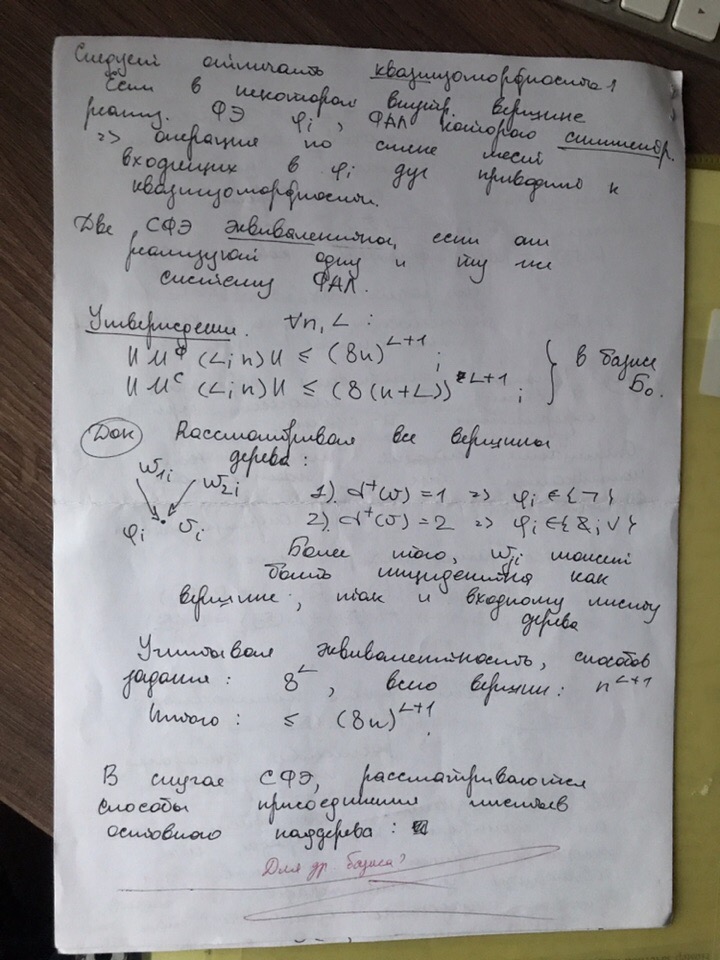 Следует отличать квазиизоморфность!
Если в некоторой внутр. вершине
реализ. ФЭ φi, ФАЛ которого симметр.
=> операция по смене мест
входящих в φi дуг приводит к
квазиизоморфности.
Две СФЭ эквивалентны, если они
реализуют одну и ту же
систему ФАЛ.
Утверждение. ∀n, L :
‖UΦ(L, n)‖ ≤ (8n)^{L+1};
‖UC(L, n)‖ ≤ (8(n+L))^{L+1};
} в базисе Б₀.
Док Рассматривая все вершины
дерева:
w1i w2i
φi vi
1). d⁺(v) = 1 => φi ∈ {¬}
2). d⁺(v) = 2 => φi ∈ {&, ∨}
Более того, wji может
быть инцидентна как
вершине, так и входному листу
дерева
Учитывая эквивалентность, способов
задания: 8^L, всего вершин: n^{L+1}
Итого: ≤ (8n)^{L+1}.
В случае СФЭ, рассматриваются
способы присоединения листьев
остовного наддерева:
Для др базиса?